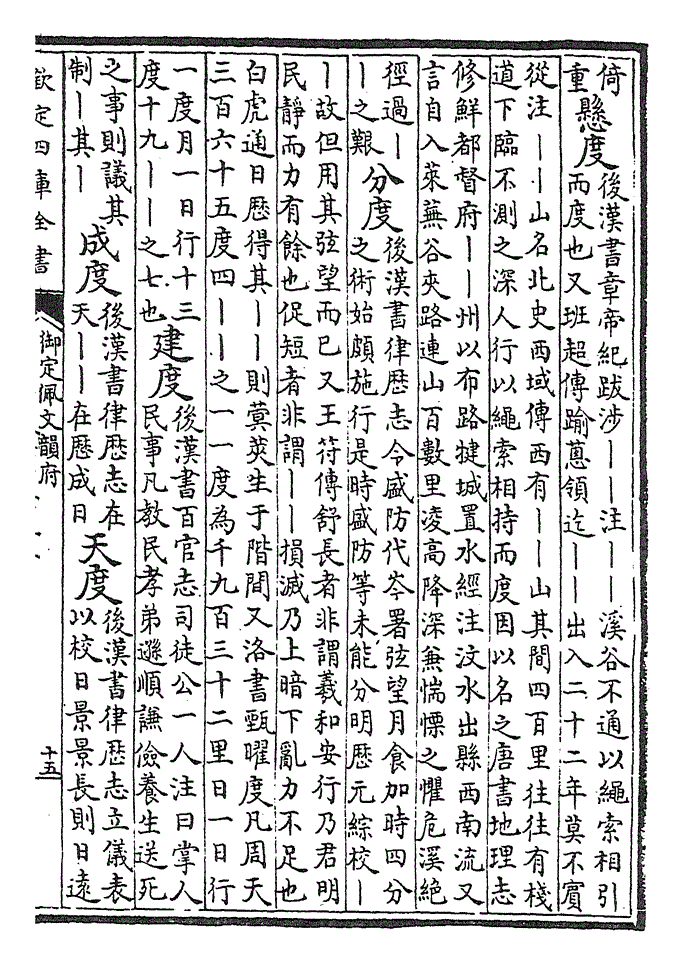 倚
重
懸度
後漢書章帝紀跋涉丨丨注丨丨溪谷不通以繩索相引
而度也又班超傳踰蔥領迄丨丨出入二十二年莫不賓
從注丨丨山名北史西域傳西有丨丨山其間四百里往往有棧
道下臨不測之深人行以繩索相持而度因以名之唐書地理志
修鮮都督府丨丨州以布路犍城置水經注汶水出縣西南流又
言自入萊蕪谷夾路連山百數里淩高降深兼惴慄之懼危溪絶
徑過丨
丨之艱
分度
後漢書律歷志今盛防代岑署弦望月食加時四分
之術始頗施行是時盛防等未能分明歷元綜校丨
丨故但用其弦望而已又王符傳舒長者非謂羲和安行乃君明
民靜而力有餘也促短者非謂丨丨損減乃上暗下亂力不足也
白虎通日歷得其丨丨則蓂莢生于階間又洛書甄曜度凡周天
三百六十五度四丨丨之一一度為千九百三十二里日一日行
一度月一日行十三
度十九丨丨之七也
建度
後漢書百官志司徒公一人注曰掌人
民事凡教民孝弟遜順謙儉養生送死
之事則議其
制丨其丨
成度
後漢書律歷志在
天丨丨在歷成日
天度
後漢書律歷志立儀表
以校日景景長則日遠
欽定四庫全書
御定佩文韻府
十五